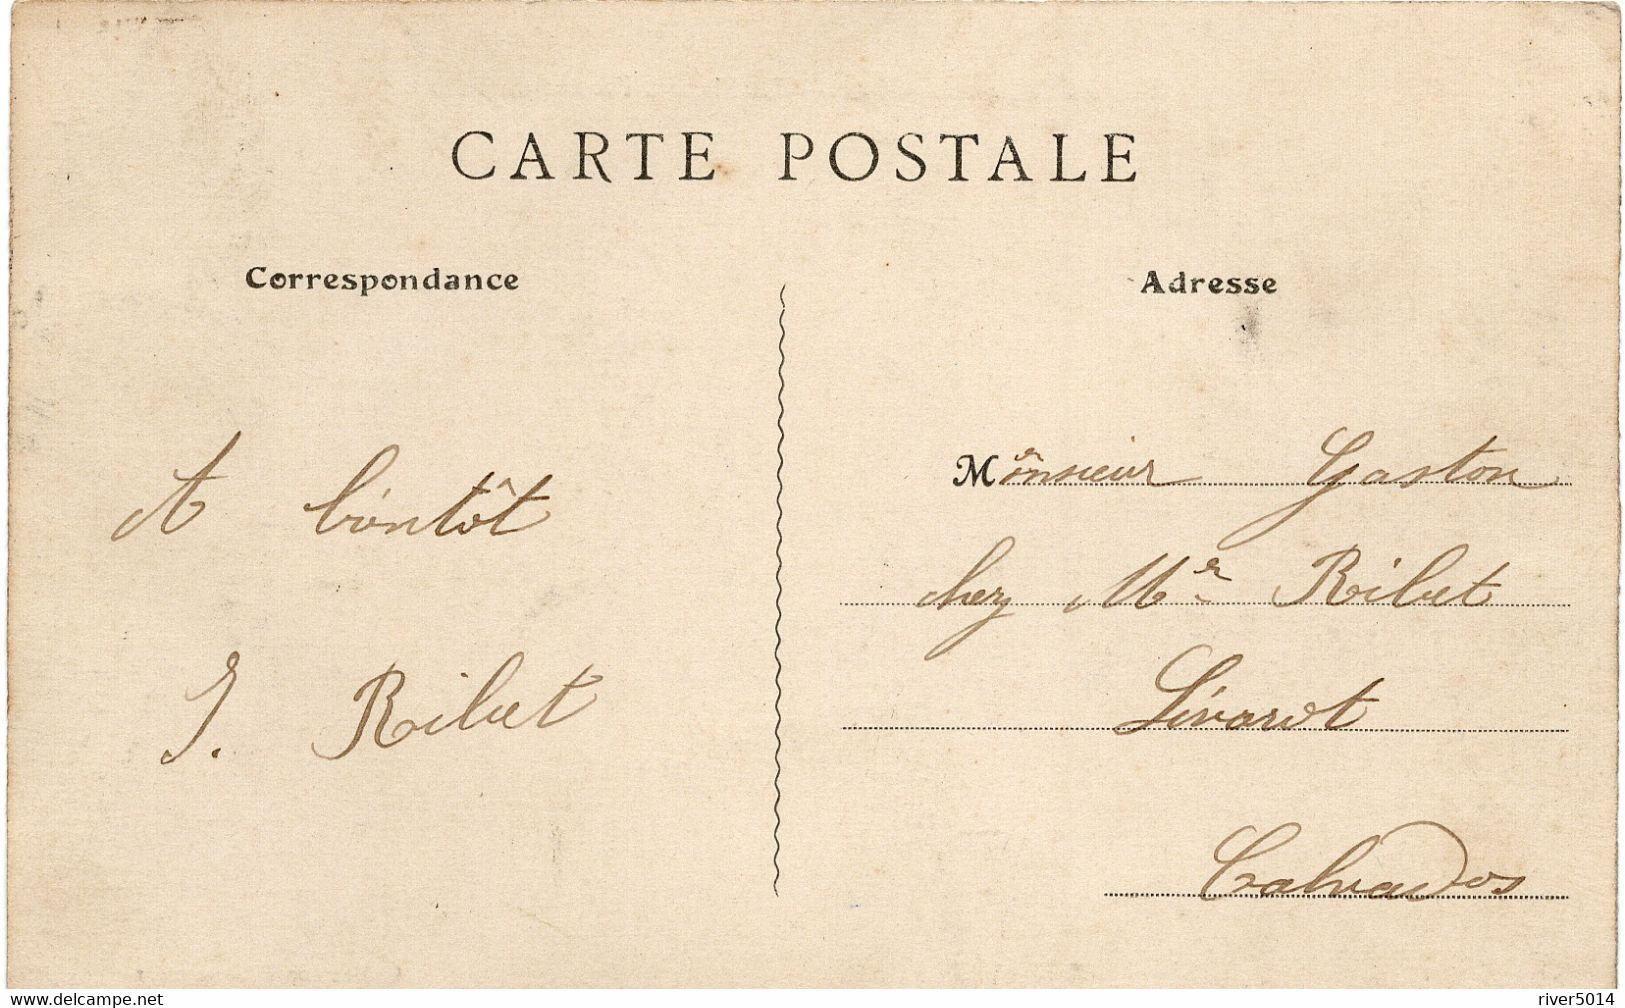 CARTE POSTALE
Correspondance
Adresse
A bientôt
J. Ribet
Monsieur Gaston
chez Mr Ribet
Livarot
Calvados
www.delcampe.net
river5014